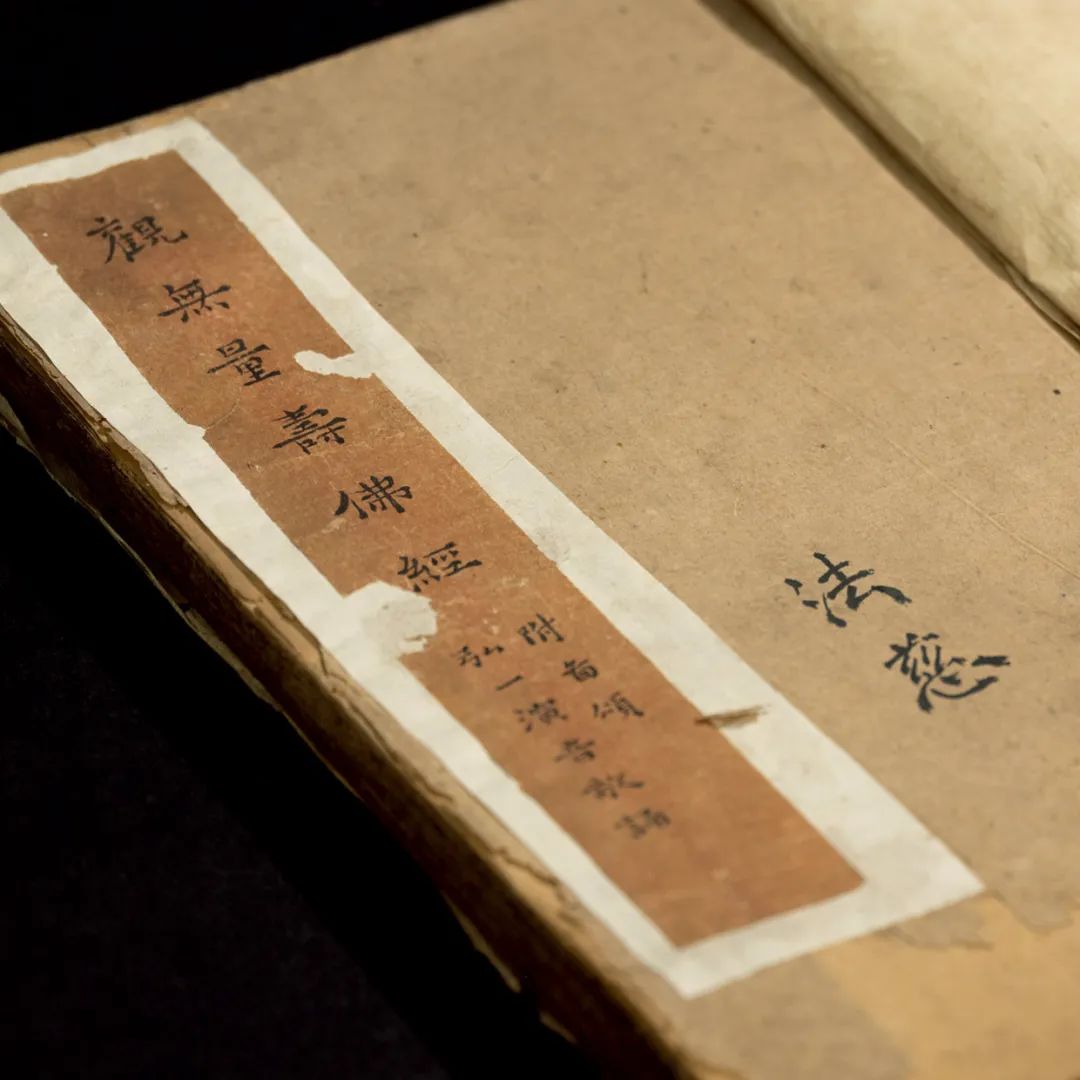 法
觀無量壽佛經
附頌
弘一演音敬誦